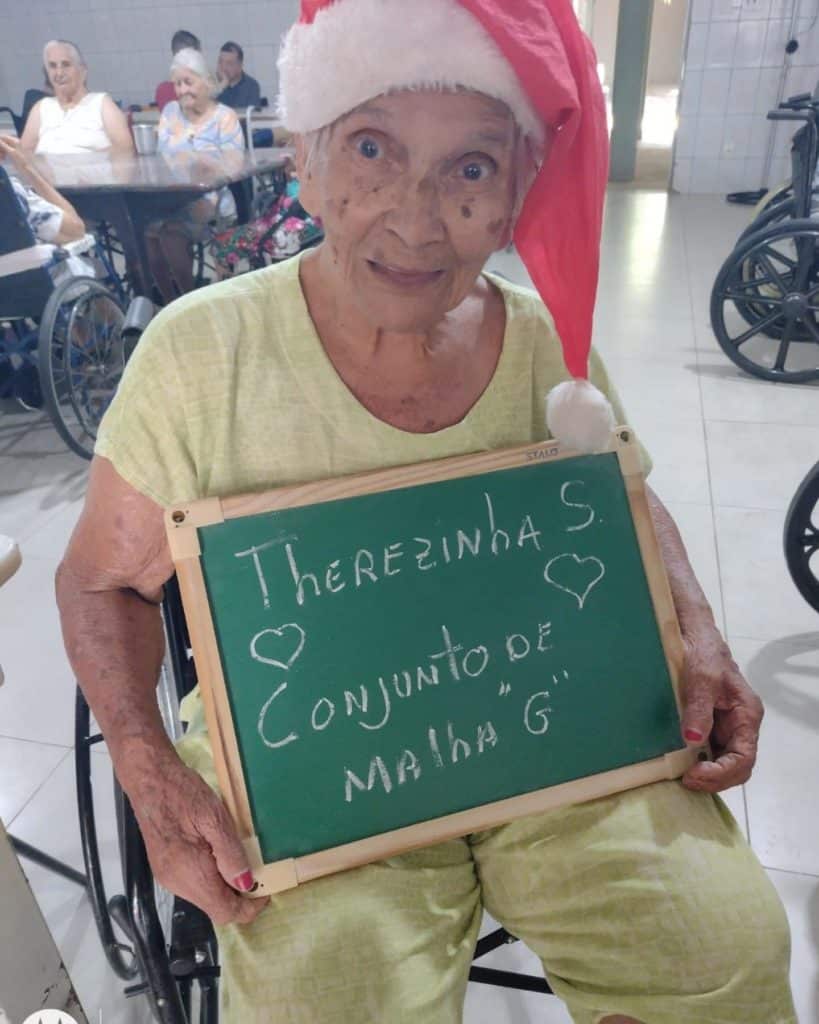 STALO
Therezinha S.
Conjunto de
Malha "G"